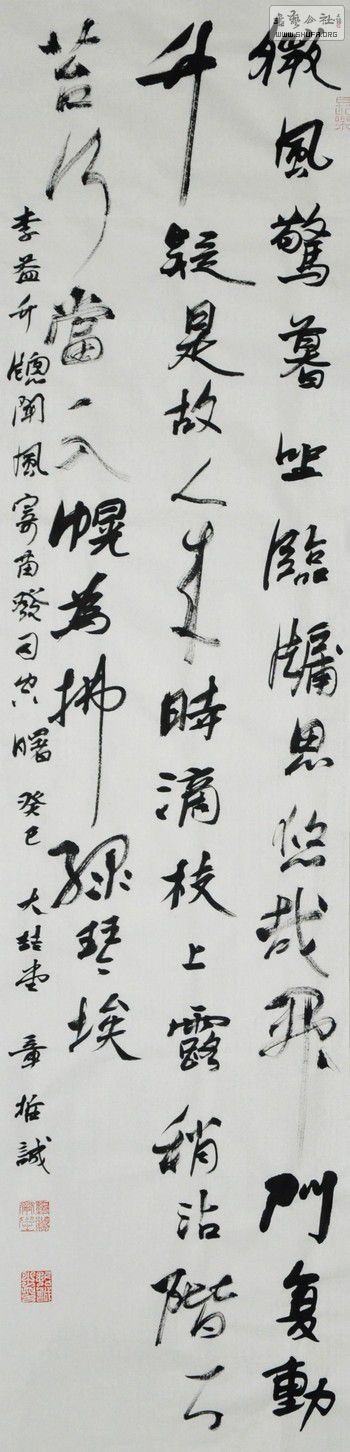 微風驚暮坐臨牖思悠哉開門复動
竹疑是故人来時滴枝上露稍沾階下
苔何當一入幌為拂綠琴埃
李益竹牕聞風寄苗發司空曙 癸巳 大 堂 章 誠
書藝公社
WWW.SHUFA.ORG